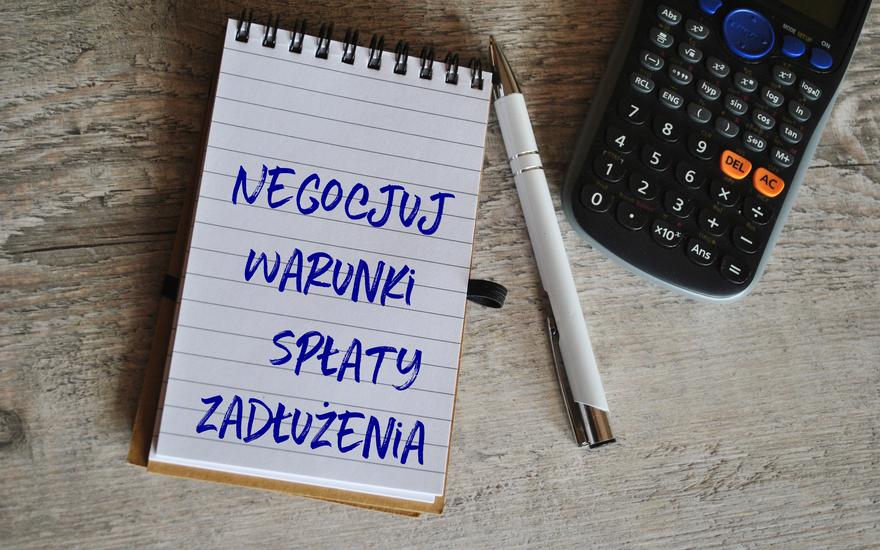 NEGOCJUJ
WARUNKi
SPŁATY
ZADŁUŻENiA
MODE SETUP ON
Abs x³ x⁻¹ logₐb
√ x² xⁿ log ln
(−) hyp sin cos tan
RCL ENG ( ) S⇔D M+
7 8 9 DEL AC
4 5 6 × ÷
1 2 3 + −
0 · ×10ˣ Ans =